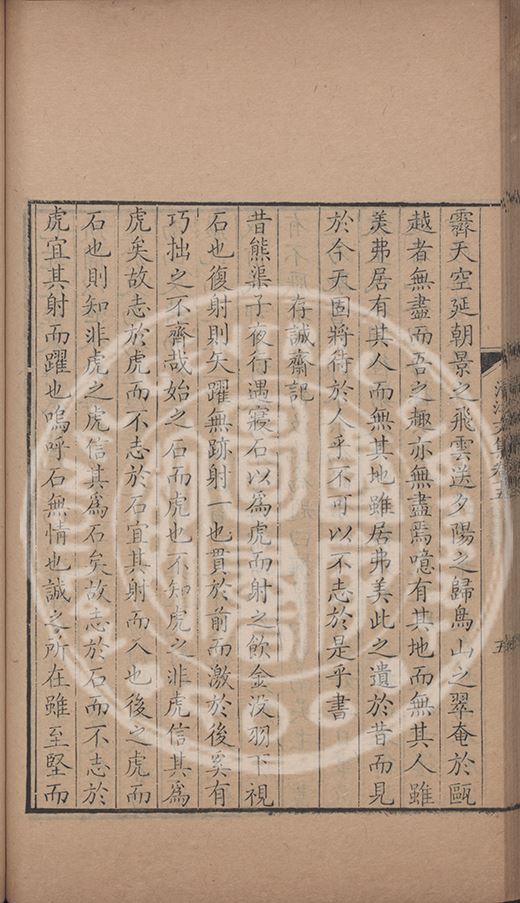 霽天空延朝景之飛雲送夕陽之歸鳥山之翠奄於甌
越者無盡而吾之趣亦無盡焉噫有其地而無其人雖
美弗居有其人而無其地雖居弗美此之遺於昔而見
於今天固將待於人乎不可以不志於是乎書
存誠齋記
昔熊渠子夜行遇寢石以為虎而射之飲金沒羽下視
石也復射則矢躍無跡射一也貫於前而激於後奚有
巧拙之不齊哉始之石而虎也不知虎之非虎信其為
虎矣故志於虎而不志於石宜其射而入也後之虎而
石也則知非虎之虎信其為石矣故志於石而不志於
虎宜其射而躍也嗚呼石無情也誠之所在雖至堅而